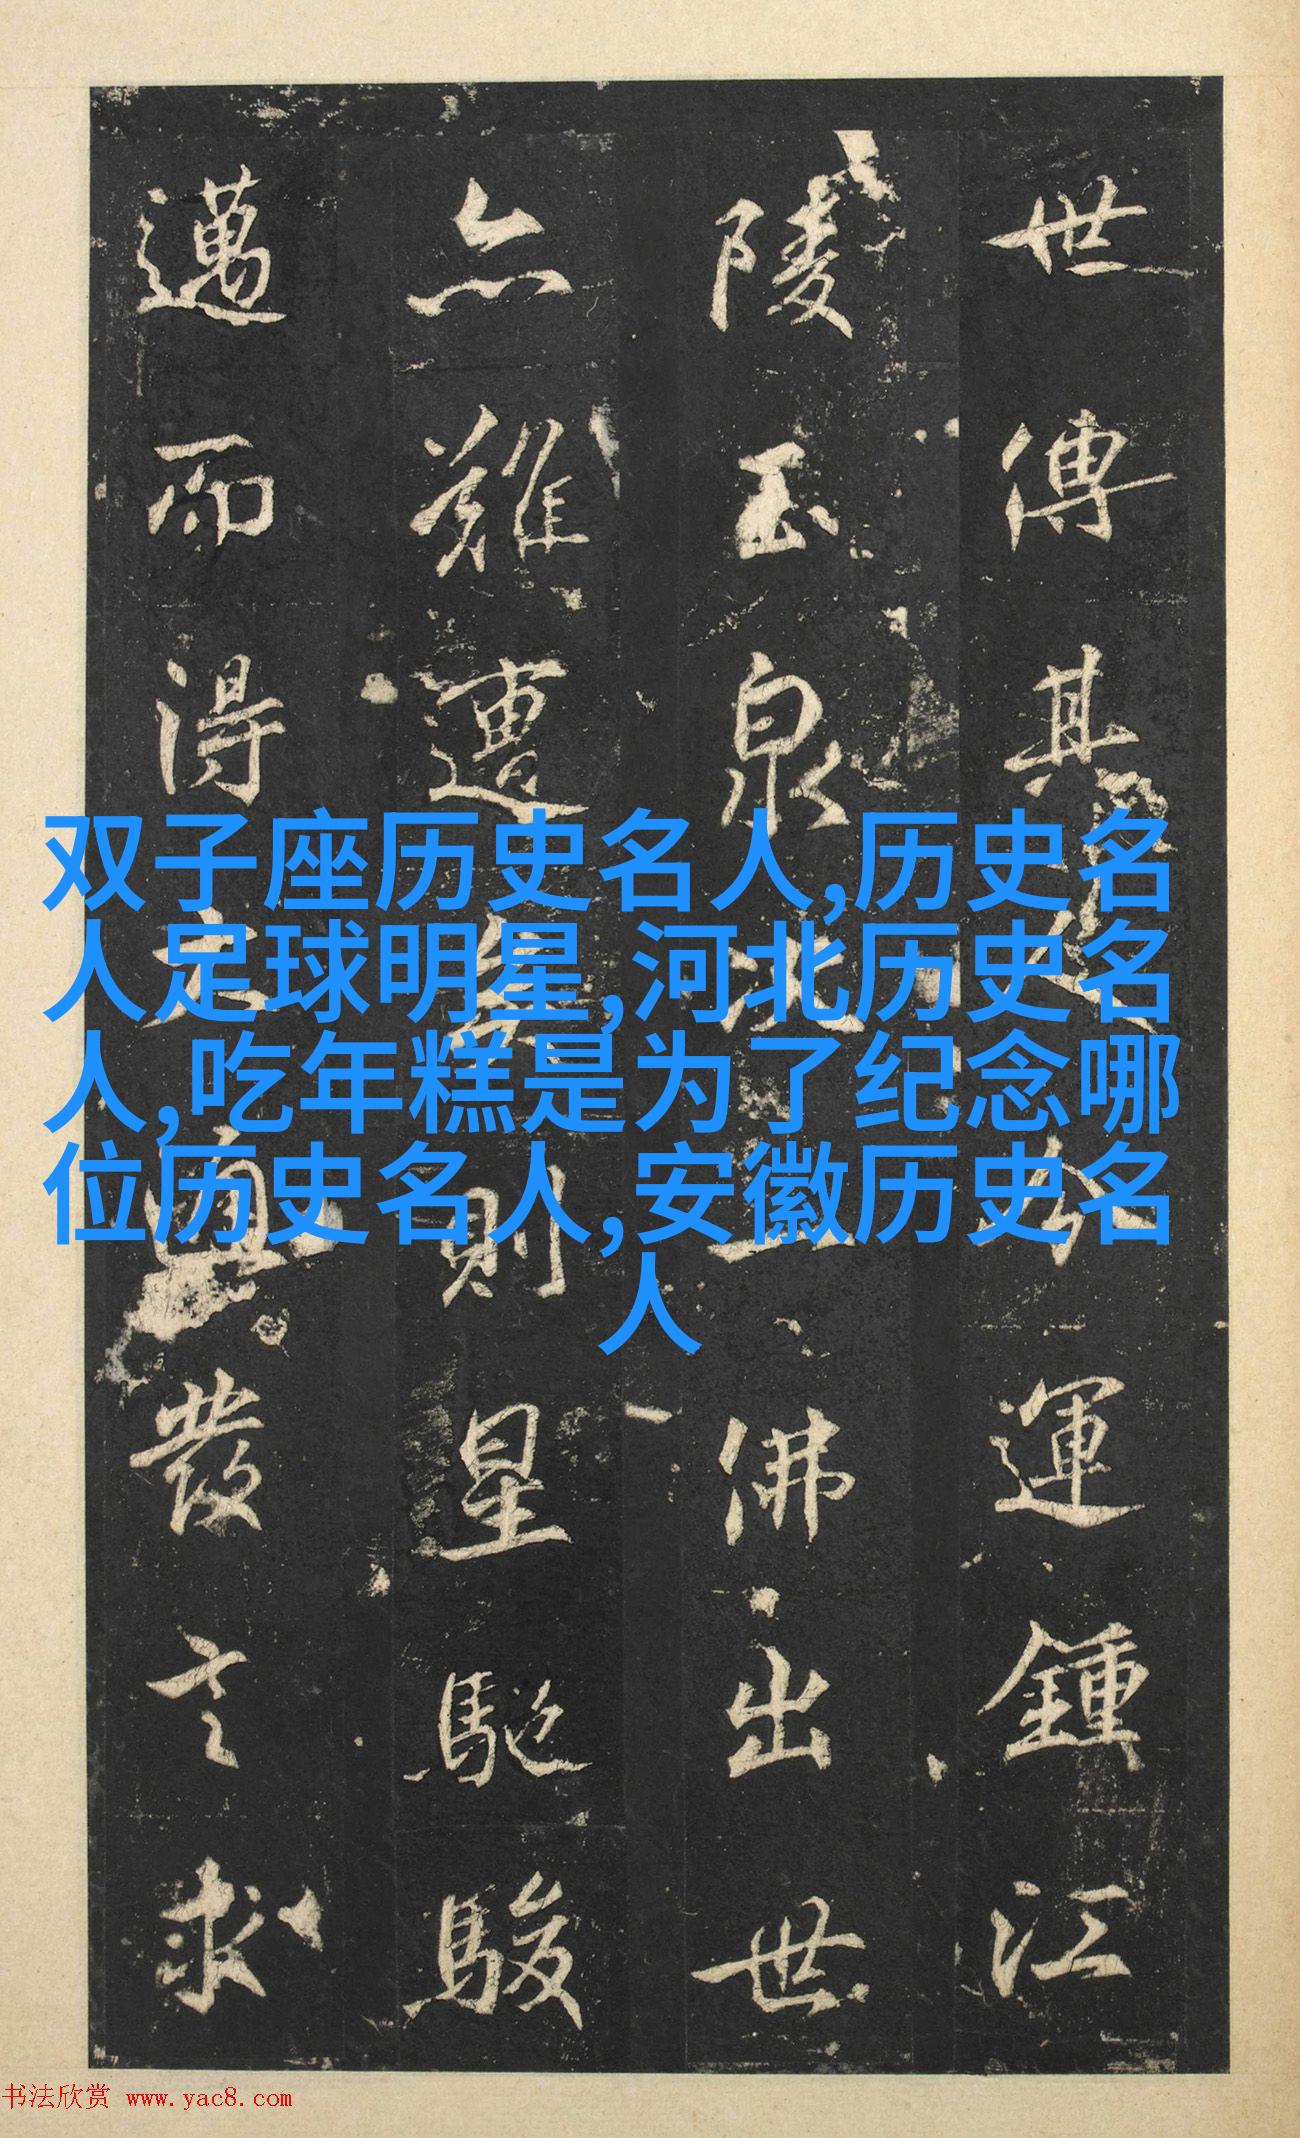 世傳其分運鍾江
陵玉泉佛出世
亦難遭則星馳駿
邁而得興發言求
双子座历史名人,历史名
人足球明星,河北历史名
人,吃年糕是为了纪念哪
位历史名人,安徽历史名
人
书法欣赏 www.yac8.com